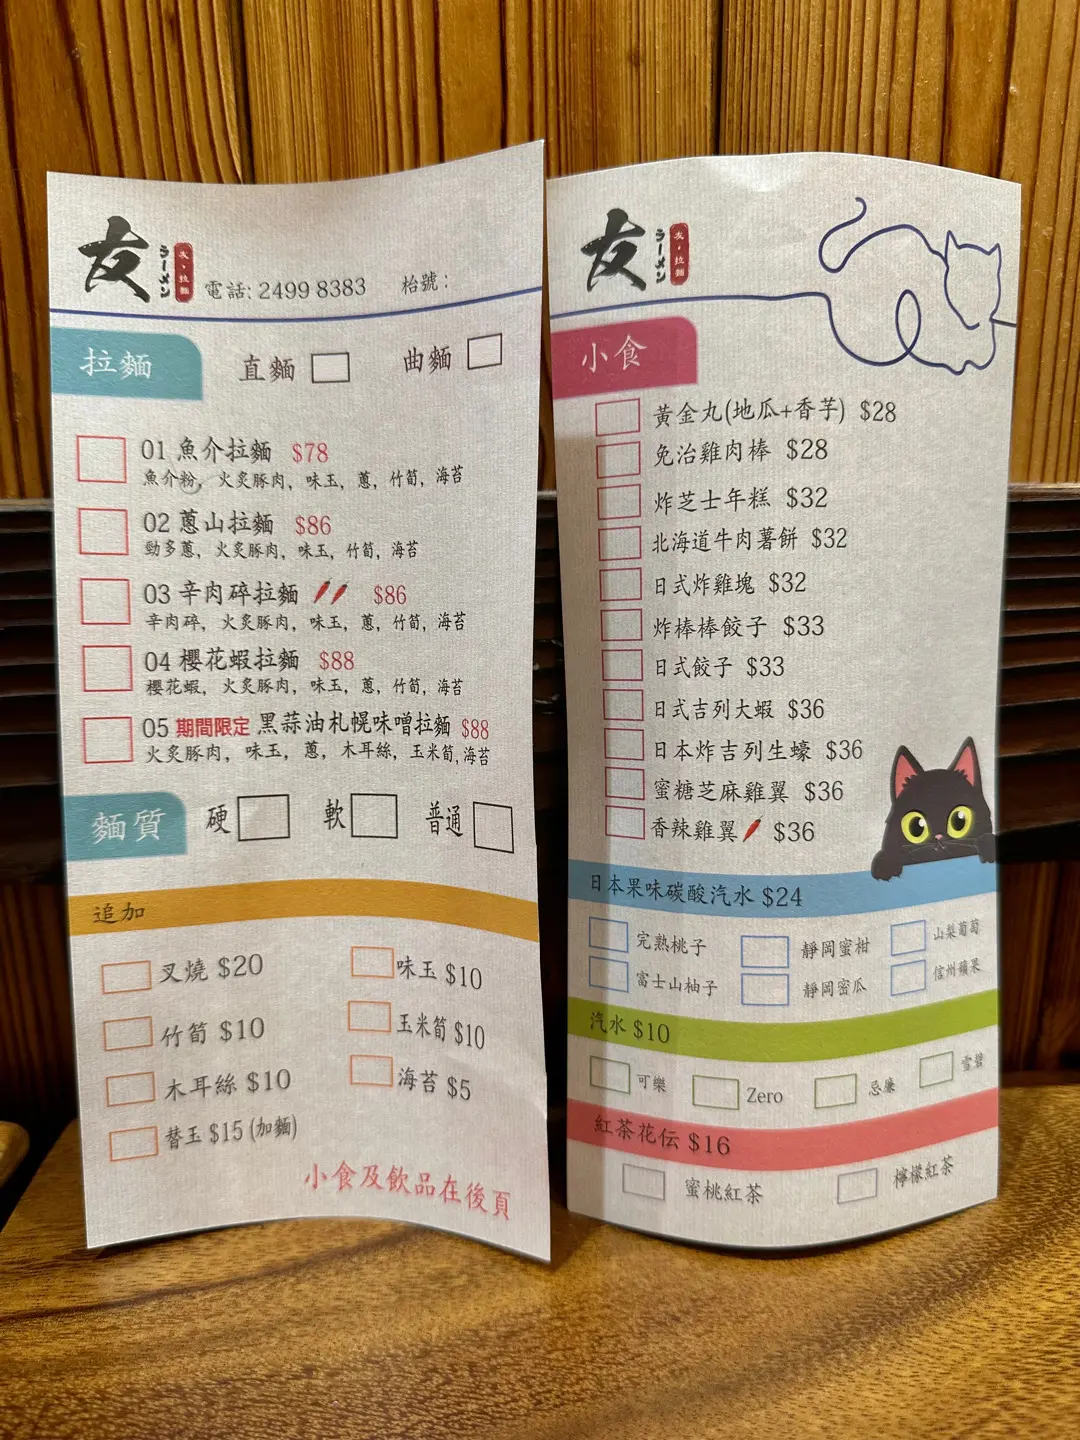 友
ラーメン
友・拉麵
電話: 2499 8383 枱號:
拉麵 直麵 曲麵
01 魚介拉麵 $78
魚介粉, 火炙豚肉, 味玉, 蔥, 竹筍, 海苔
02 蔥山拉麵 $86
勁多蔥, 火炙豚肉, 味玉, 竹筍, 海苔
03 辛肉碎拉麵 $86
辛肉碎, 火炙豚肉, 味玉, 蔥, 竹筍, 海苔
04 櫻花蝦拉麵 $88
櫻花蝦, 火炙豚肉, 味玉, 蔥, 竹筍, 海苔
05 期間限定 黑蒜油札幌味噌拉麵 $88
火炙豚肉, 味玉, 蔥, 木耳絲, 玉米筍, 海苔
麵質 硬 軟 普通
追加
叉燒 $20 味玉 $10
竹筍 $10 玉米筍 $10
木耳絲 $10 海苔 $5
替玉 $15 (加麵)
小食及飲品在後頁
友
ラーメン
友・拉麵
小食
黃金丸(地瓜+香芋) $28
免治雞肉棒 $28
炸芝士年糕 $32
北海道牛肉薯餅 $32
日式炸雞塊 $32
炸棒棒餃子 $33
日式餃子 $33
日式吉列大蝦 $36
日本炸吉列生蠔 $36
蜜糖芝麻雞翼 $36
香辣雞翼 $36
日本果味碳酸汽水 $24
完熟桃子 靜岡蜜柑 山梨葡萄
富士山柚子 靜岡密瓜 信州蘋果
汽水 $10
可樂 Zero 忌廉 雪碧
紅茶花伝 $16
蜜桃紅茶 檸檬紅茶